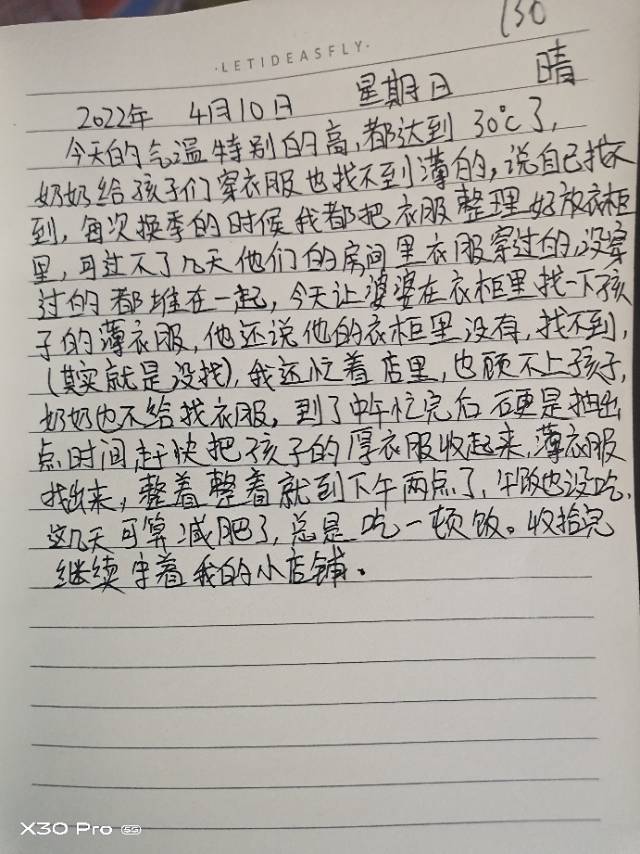 130
·LETIDEASFLY·
2022年 4月10日 星期日 晴
今天的气温特别的高，都达到30℃了，
奶奶给孩子们穿衣服也找不到薄的，说自己找不
到，每次换季的时候我都把衣服整理好放衣柜
里，可过不了几天他们的房间里衣服穿过的，没穿
过的都堆在一起，今天让婆婆在衣柜里找一下孩
子的薄衣服，他还说他的衣柜里没有，找不到，
（其实就是没找），我还忙着店里，也顾不上孩子，
奶奶也不给找衣服，到了中午忙完后硬是抽出
点时间赶快把孩子的厚衣服收起来，薄衣服
找出来，整着整着就到下午两点了，午饭也没吃，
这几天可算减肥了，总是吃一顿饭。收拾完
继续守着我的小店铺。
X30 Pro 5G